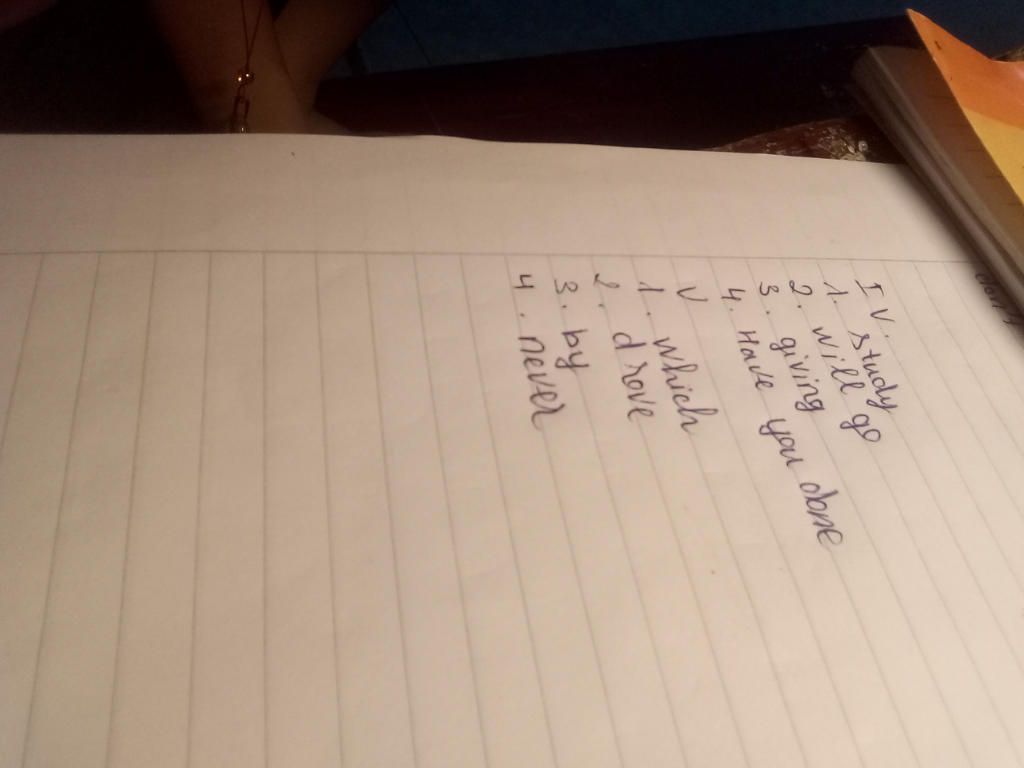 IV.
1. study
2. will go
3. giving
4. Have you done
V
1. which
2. drove
3. by
4. never